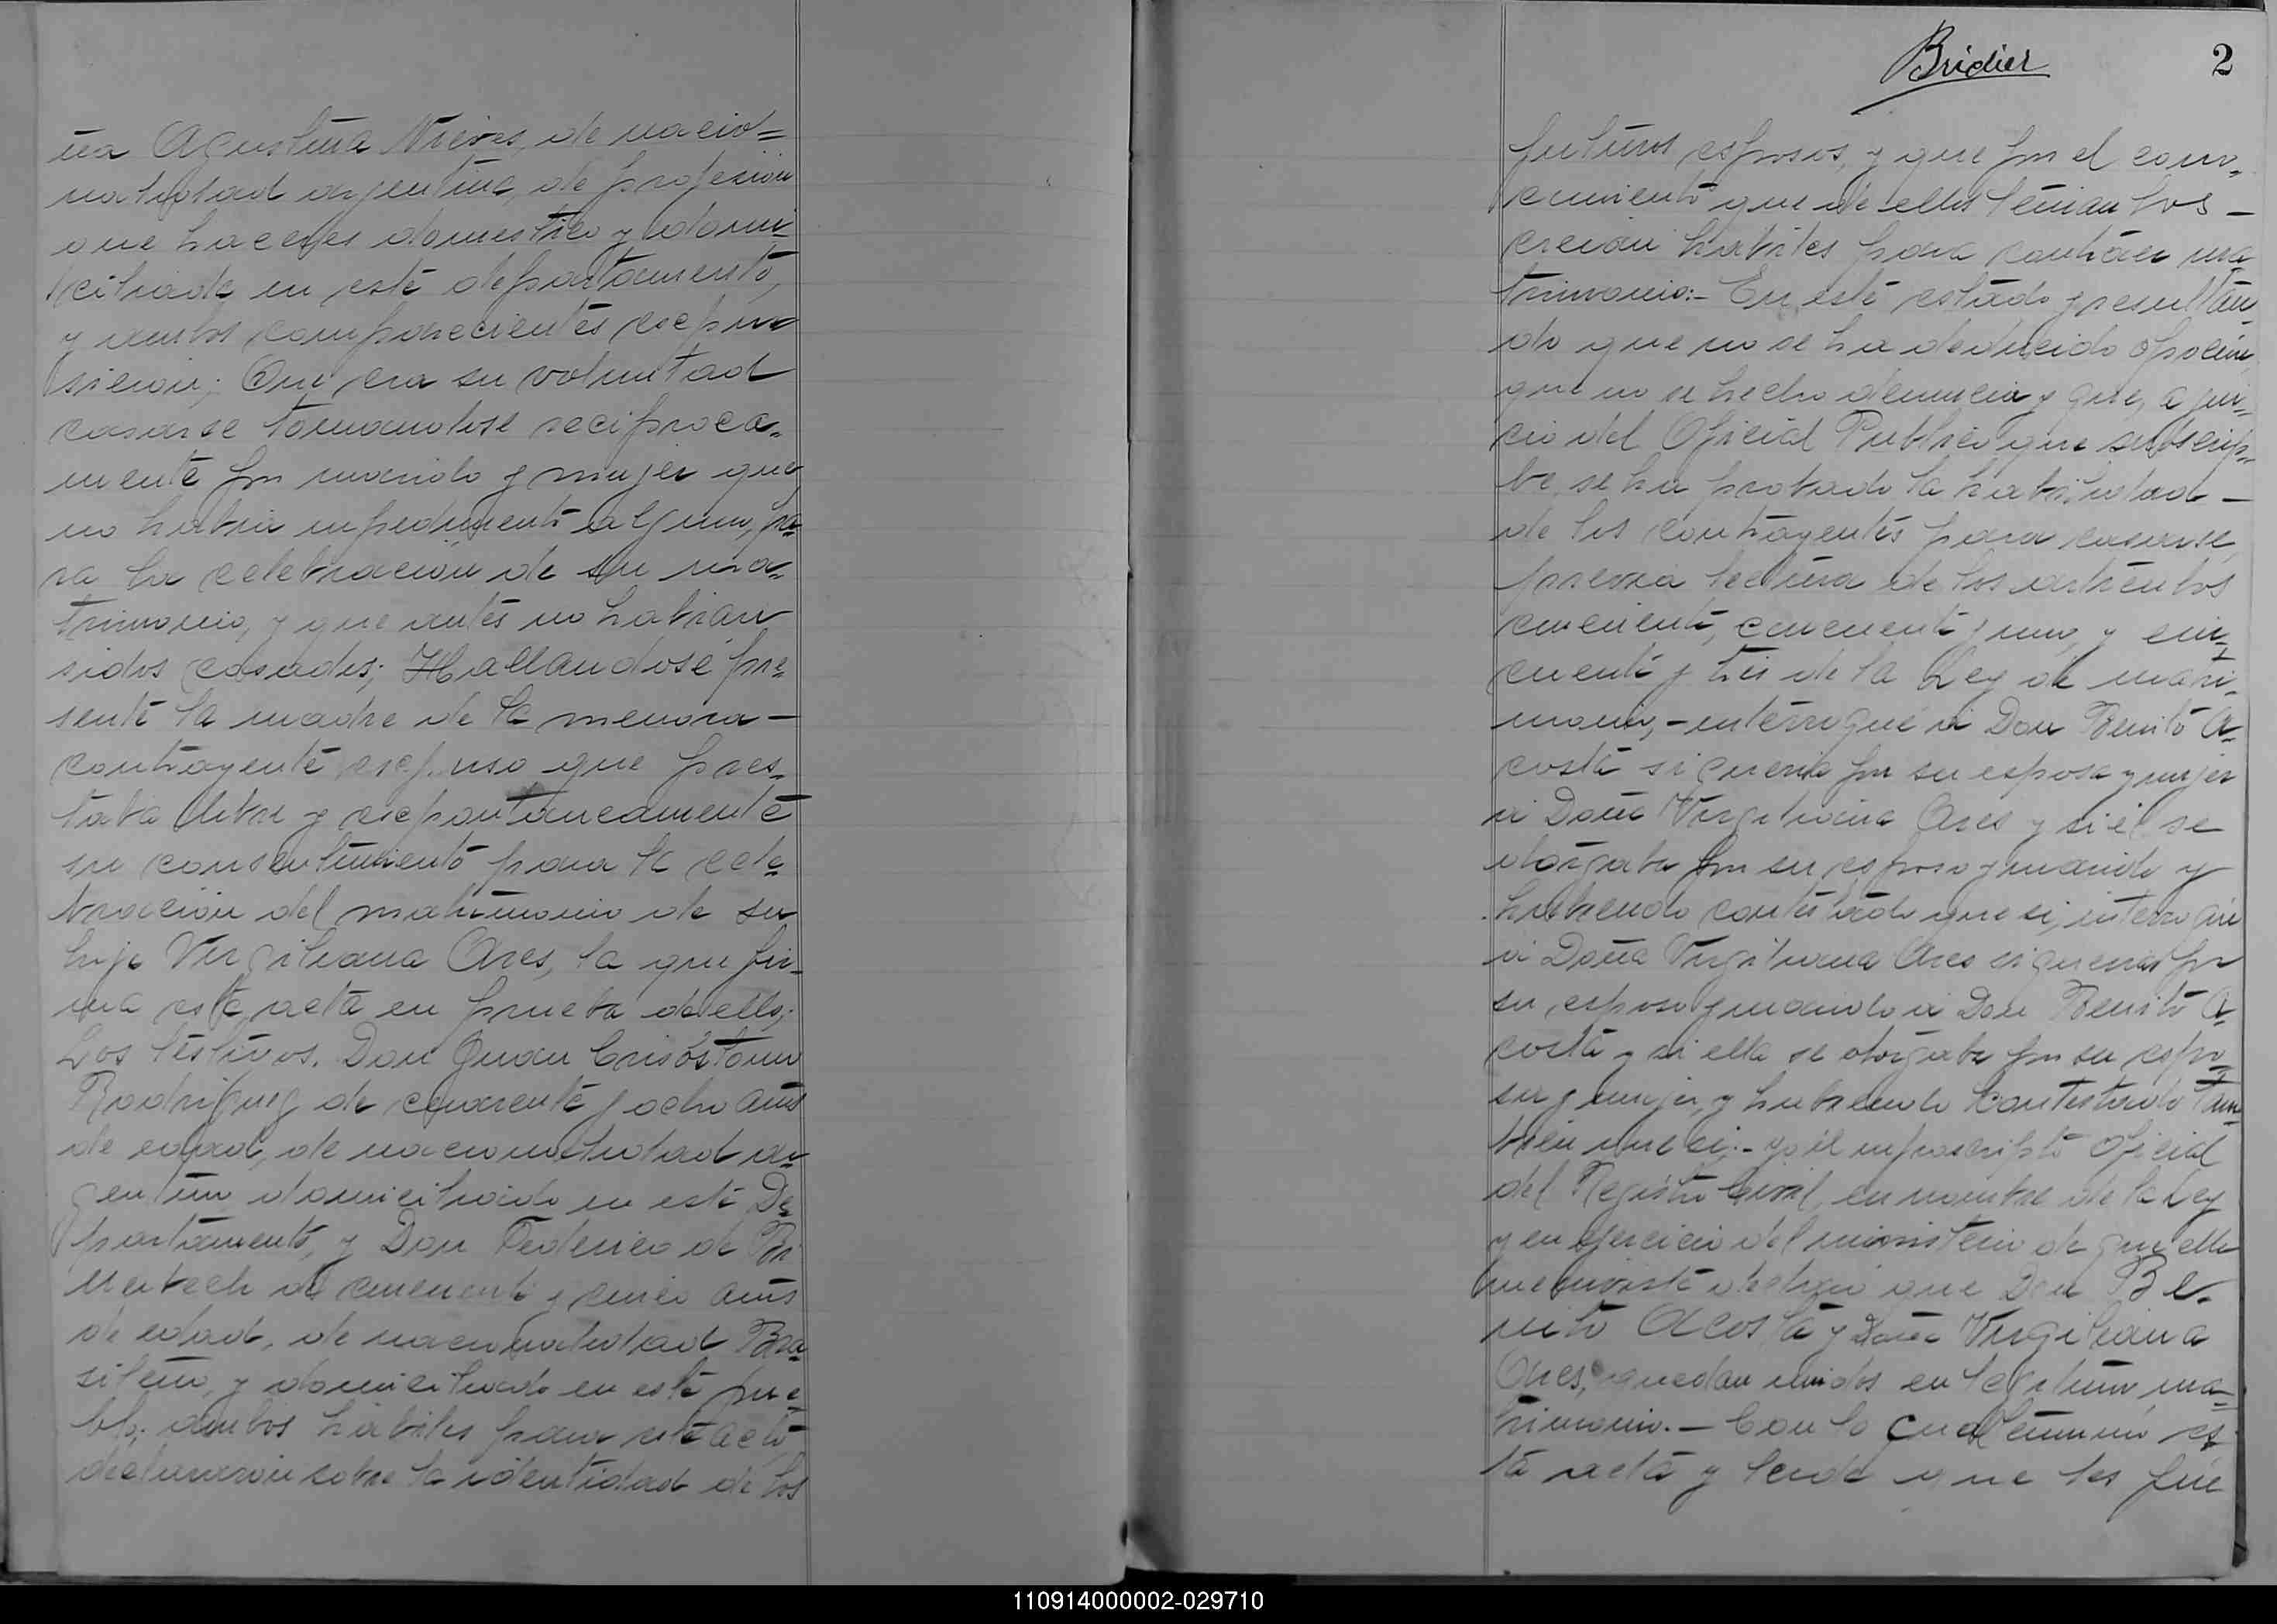 ña Agustina Nieves, de nacio=
nalidad argentina, de profesion
que haceres domestico y domi
ciliada en esté departamentó,
y ambos comparecientes espu
sieron; Que era su voluntad
casarse tomandose reciproca=
mente por marido y mujer que
no habia impedimento alguno, pa=
ra la celebracion de su ma=
trimonio, y que antes no habian
sidos casados; Hallandose pre=
sente la madre de la menora —
contrayente espuso que pres=
taba libre y espontaneamente
su consentimiento para la cele=
bracion del matrimonio de su
hija Virgiliana Ares, la que fir=
ma esta acta en prueba de ello;
Los testigos. Don Juan Crisóstomo
Rodriguez de cuarenta y ocho años
de edad, de nacionalidad ar=
gentino domiciliado en este De=
partamento, y Don Federico de
de cincuenta y cinco años
de edad, de nacionalidad Bra=
silero, y domiciliado en este pue=
blo; ambos habiles para este acto
declararon sobre la identidad de los
Bridier
2
futuros esposos, y que por el cono=
cimiento que de ellos tenian los —
creian habiles para contraer ma
trimonio:- En este estado y resultan
do que no se ha deducido oposicion,
que no se hecho denuncia y que, a jui=
cio del Oficial Publico que subscrip=
be, se ha probado la habilidad —
de los contrayentes para casarse,
previa lectura de los articulos
cincuenta, cincuenta y uno, y cin=
cuenta y tres de la Ley de matri=
monio, - interrogué a Don Benito A=
costa si queria por su esposa y mujer
a Doña Virgiliana Ares y si él se
otorgaba por su esposo y marido y
habiendo contestado que si, interrogué
a Doña Virgiliana Ares si queria por
su esposo y marido a Don Benito A=
costa y si ella se otorgaba por su espo=
sa y mujer, y habiendo contestado tam=
bien que si:- yo él infrascripto Oficial
del Registro Civil, en nombre de la Ley
y en ejercicio del ministerio de que ella
me inviste declaro que Don Be=
nito Acosta y Doña Virgiliana
Ares, quedan unidos en legitimo ma=
trimonio. — Con lo cual termino es=
ta acta y leida que les fué
110914000002-029710